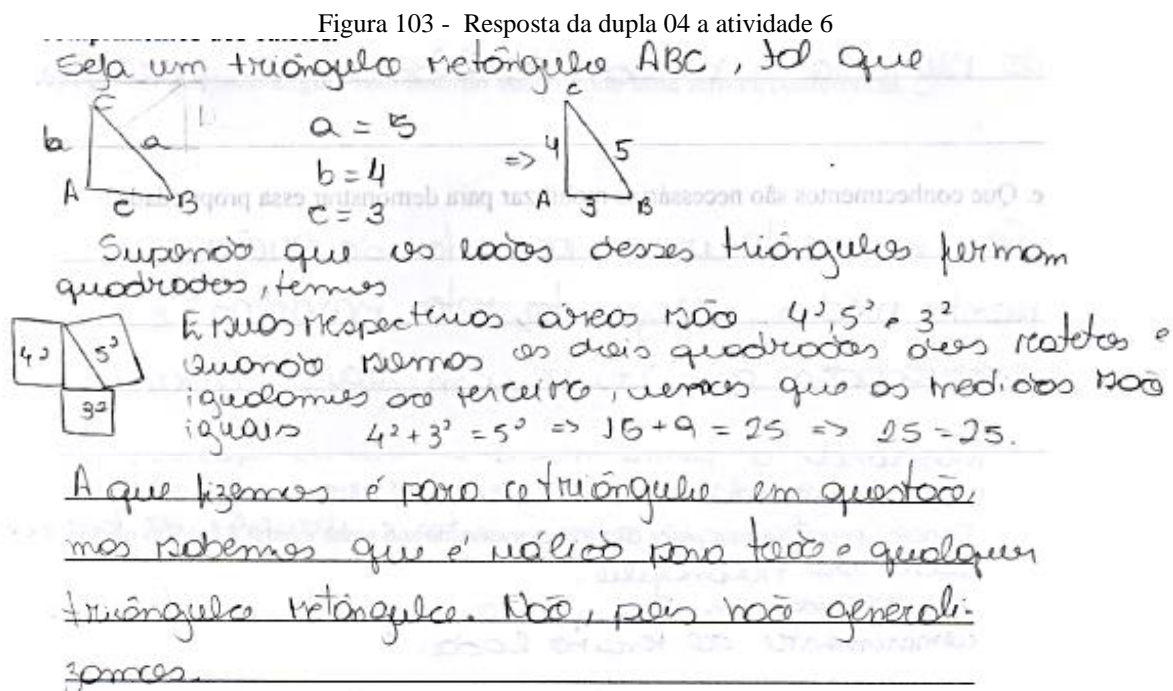 Figura 103 - Resposta da dupla 04 a atividade 6
Seja um triângulo retângulo ABC, tal que
C
b a
A c B
a = 5
b = 4
c = 3
=>
C
4 5
A 3 B
e. Que conhecimentos são necessários mobilizar para demonstrar essa propriedade
Supondo que os lados desses triângulos formam
quadrados, temos
4² 5²
3²
E suas respectivas áreas são 4², 5² e 3²
quando somos os dois quadrados dos catetos e
igualamos ao terceiro, vemos que as medidas são
iguais 4² + 3² = 5² => 16 + 9 = 25 => 25 = 25.
A que fizemos é para o triângulo em questão,
mas sabemos que é válido para todo e qualquer
triângulo retângulo. Não, pois não generali-
zamos.